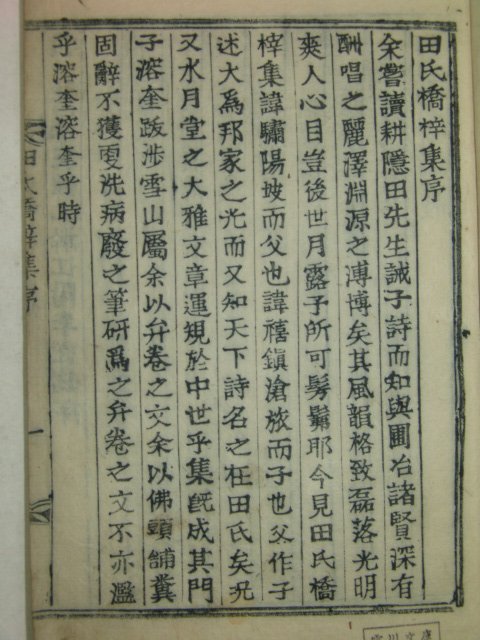 田氏橋梓集序
余嘗讀耕隱田先生誠子詩而知與圃冶諸賢深有
酬唱之麗澤淵源之溥博矣其風韻格致磊落光明
爽人心目豈後世月露子所可髣髴耶今見田氏橋
梓集諱驌陽坡而父也諱禧鎭滄旅而子也父作子
述大爲邦家之光而又知天下詩名之在田氏矣況
又水月堂之大雅文章運規於中世乎集旣成其門
子溶奎跋涉雪山屬余以弁卷之文余以佛頭鋪糞
固辭不獲更洗病廢之筆硏爲之弁卷之文不亦濫
乎溶奎溶奎乎時
田氏橋梓集序
一